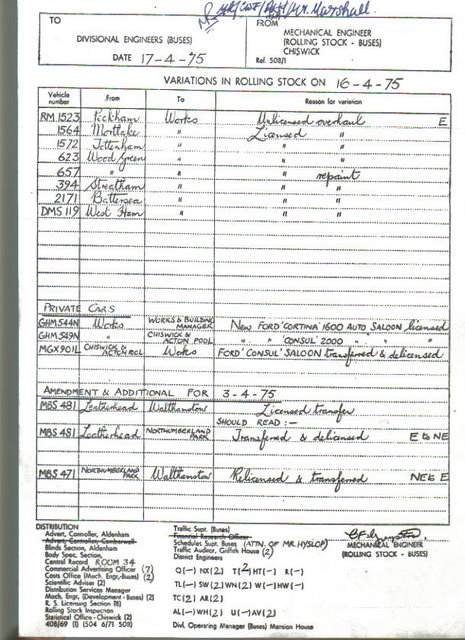 Mr Marshall.
TO FROM
DIVISIONAL ENGINEERS (BUSES) MECHANICAL ENGINEER
(ROLLING STOCK - BUSES)
CHISWICK
DATE 17-4-75 Ref. 508/1
VARIATIONS IN ROLLING STOCK ON 16-4-75
Vehicle number From To Reason for variation
RM 1523 Peckham Works Unlicensed overhaul E
1564 Mortlake " Licensed "
1572 Tottenham " " "
623 Wood Green " " "
657 " " " repaint
394 Streatham " " "
2171 Battersea " " "
DMS 119 West Ham " " "
PRIVATE CARS
GHM 544N Works WORKS & BUILDING MANAGER New FORD 'CORTINA' 1600 AUTO SALOON licensed
GHM 549N " CHISWICK & ACTON POOL " " 'CONSUL' 2000 " " "
MGX 901L CHISWICK & ACTON POOL Works FORD 'CONSUL' SALOON transferred & delicensed
AMENDMENT & ADDITIONAL FOR 3-4-75
MBS 481 Leatherhead Walthamstow Licensed transfer
SHOULD READ :-
MBS 481 Leatherhead NORTHUMBERLAND PARK Transferred & delicensed E to NE
MBS 471 NORTHUMBERLAND PARK Walthamstow Relicensed & transferred NE to E
DISTRIBUTION
Advert. Controller, Aldenham
Advert. Controller, Camberwell
Blinds Section, Aldenham
Body Spec. Section,
Central Record ROOM 34
Commercial Advertising Officer (7)
Costs Office (Mech. Engr.-Buses) (2)
Scientific Adviser (2)
Distribution Services Manager
Mech. Engr. (Development - Buses) (2)
R. S. Licensing Section (8)
Rolling Stock Inspection
Statistical Office - Chiswick (2)
408/69 (1) (504 6/71 508)
Traffic Supt. (Buses)
Financial Research Officer
Schedules Supt. Buses (ATTN. OF MR. HYSLOP)
Traffic Auditor, Griffith House (2)
District Engineers
Q(-) NX(2) T(2) HT(-) R(-)
TL(-) SW(2) WN(-) W(-) HW(-)
TC(2) AR(2)
AL(-) WH(2) U(-) AV(2)
Divl. Operating Manager (Buses) Mansion House
MECHANICAL ENGINEER
(ROLLING STOCK - BUSES)